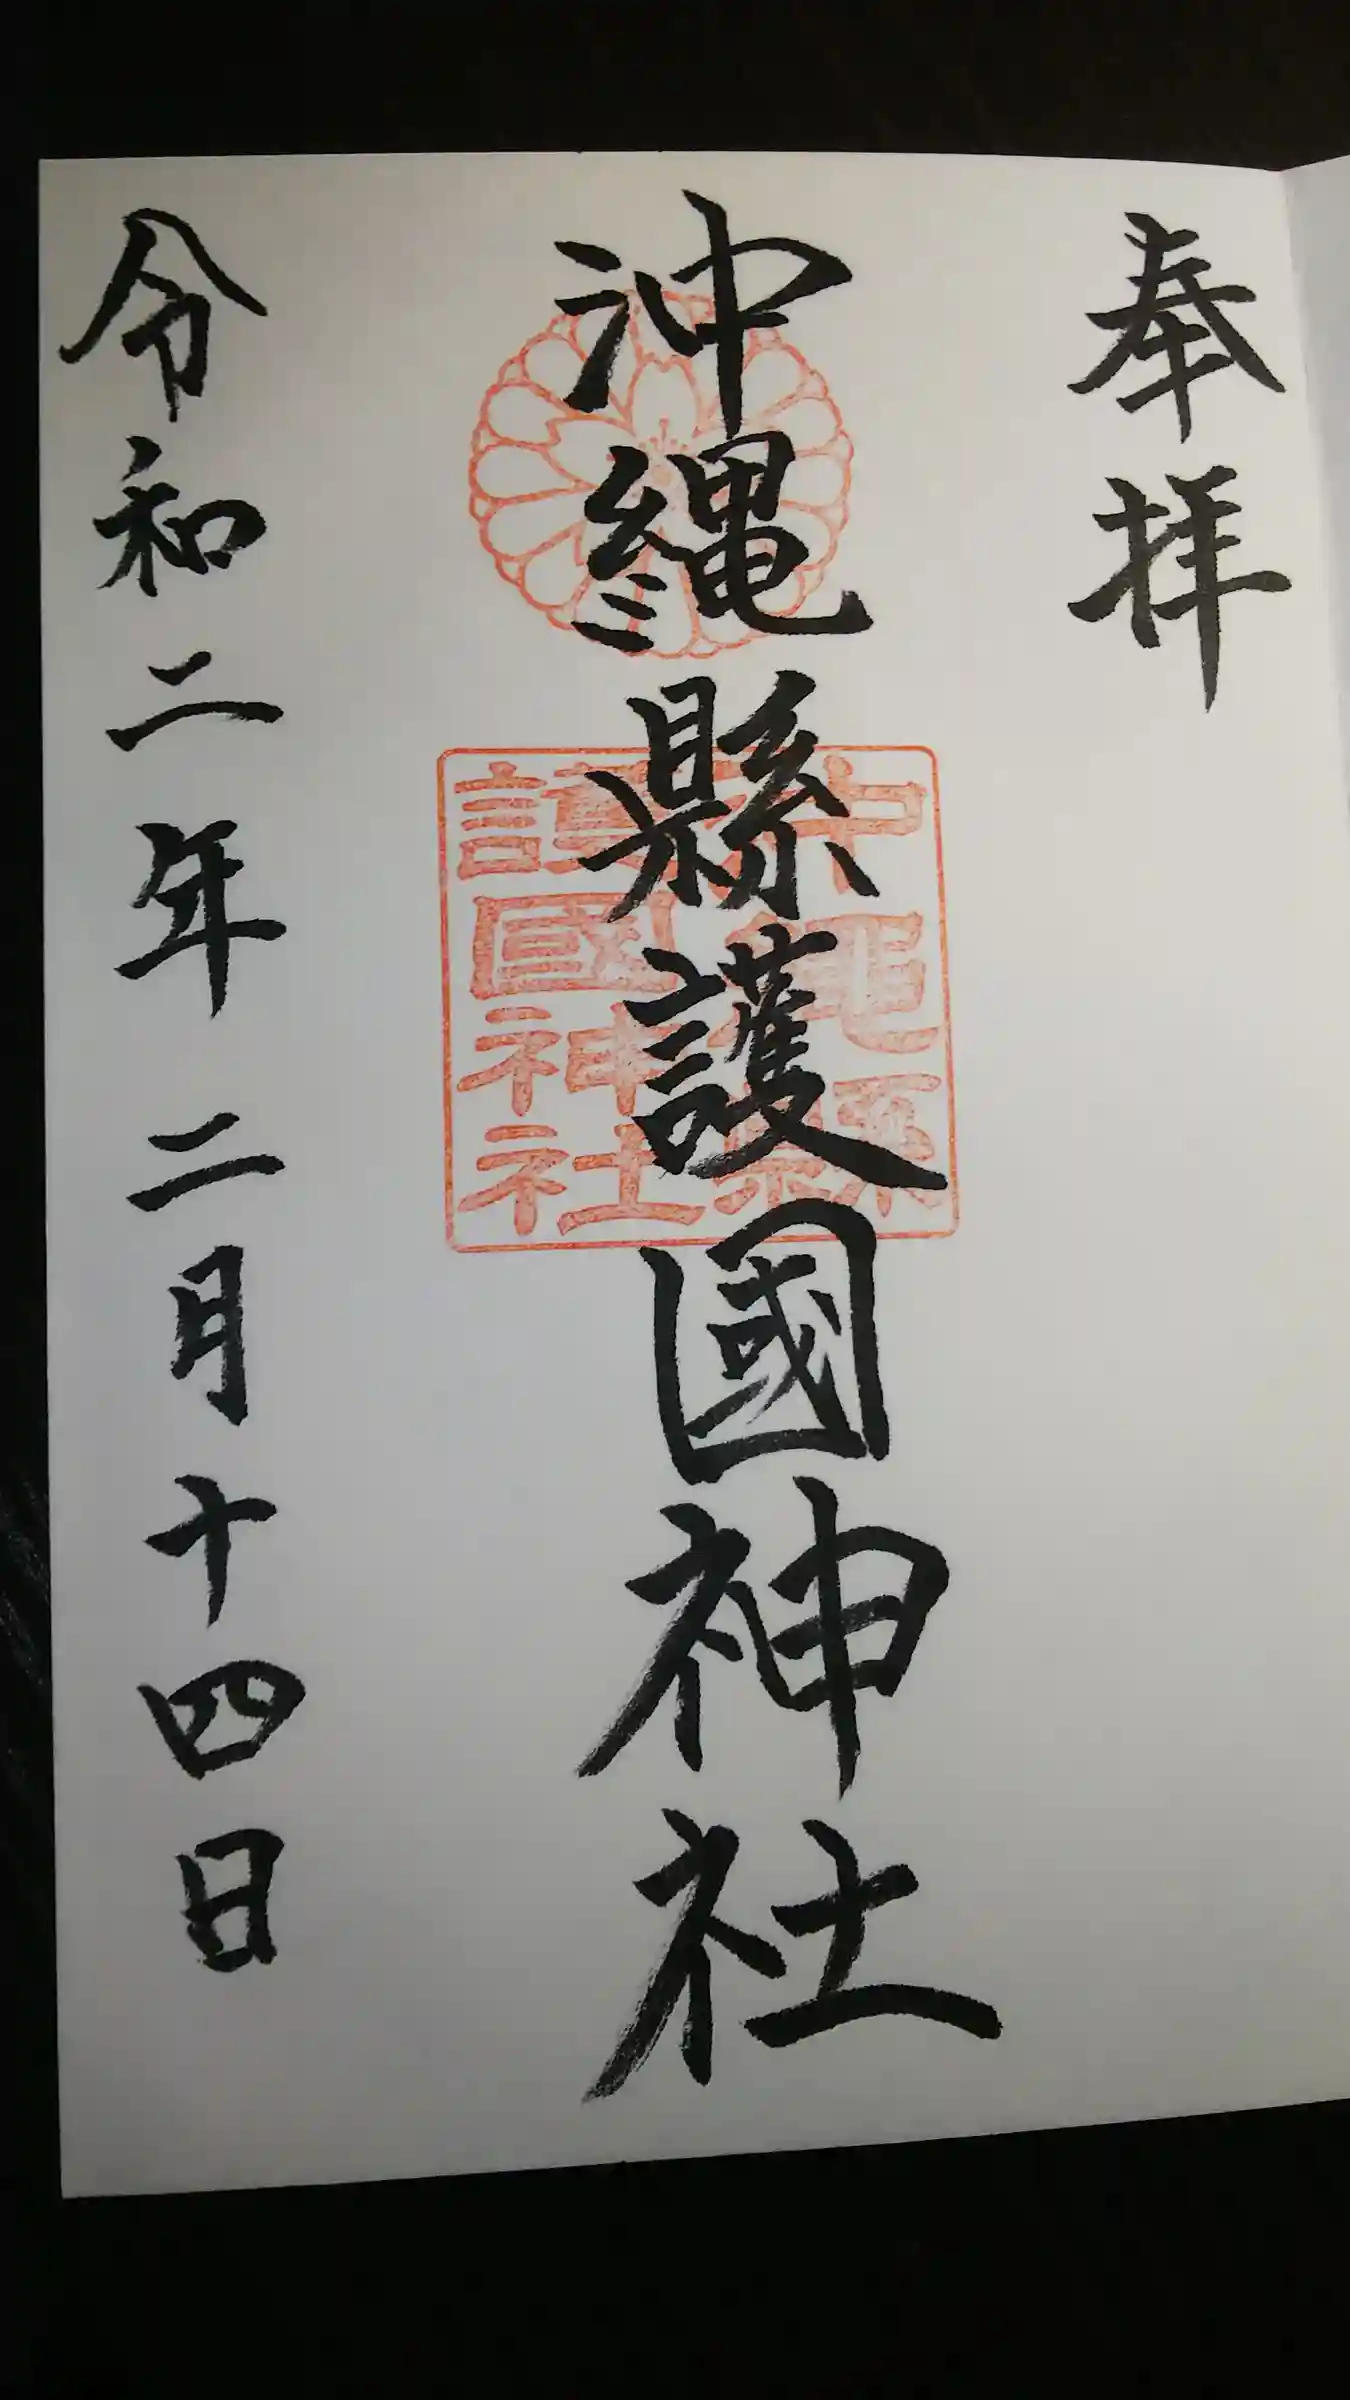 奉拝
沖縄縣護國神社
沖縄縣
護國神社
令和二年二月十四日